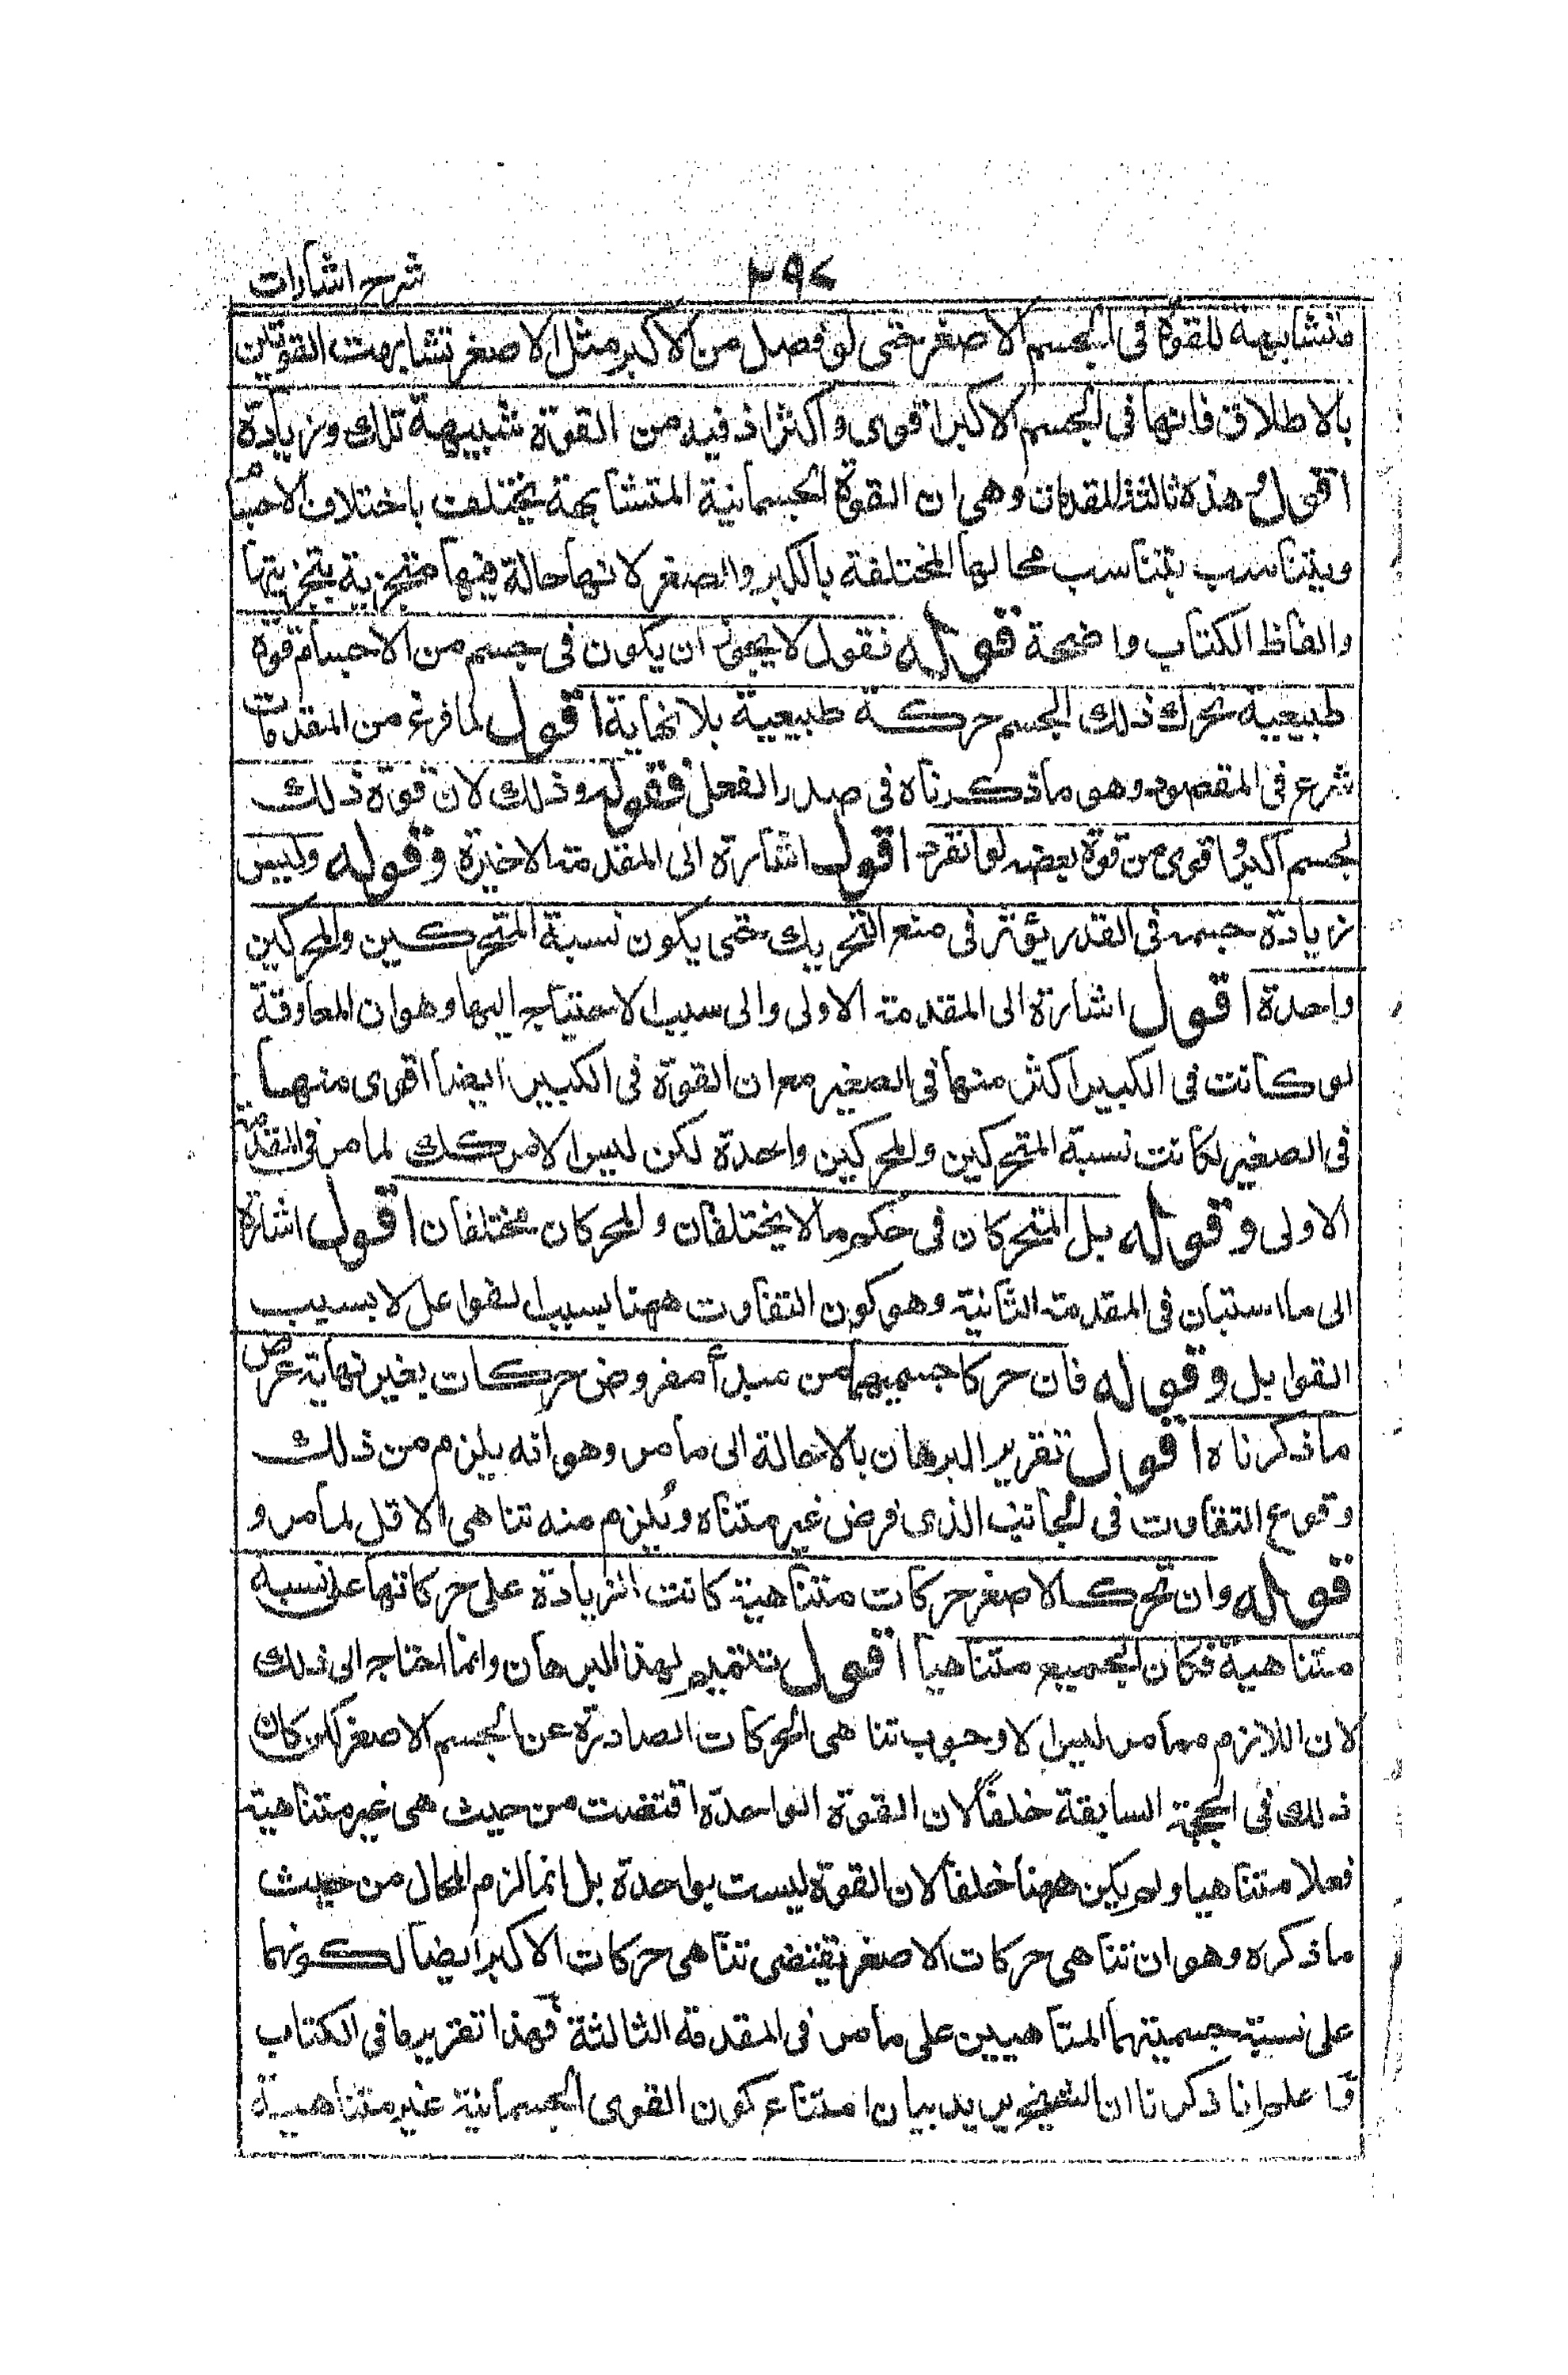 شرح اشارات
٢٩٤
متشابهة للقوة فى الجسم الاصغر حتى لو فصل من الاكبر مثل الاصغر تشابهت القوتين
بالاطلاق فانها فى الجسم الاكبر اقوى واكثر اذ فيه من القوة شبيهة تلك وزيادة
اقول هذه ثالثة المقدمات وهى ان القوة الجسمانية المتشابهة يختلف باختلاف الاجسام
ويتناسب بتناسب محالها المختلفة بالكبر والصغر لانها حالة فيها متجزية بتجزيتها
والفاظ الكتاب واضحة قوله نقول لا يجوز ان يكون فى جسم من الاجسام قوة
طبيعية تحرك ذلك الجسم حركة طبيعية بلا نهاية اقول لما فرغ من المقدمات
شرع فى المقصود وهو ما ذكرناه فى صدر الفصل فقوله وذلك لان قوة ذلك
لجسم اكبر اقوى من قوة بعضه لو انفرد اقول اشارة الى المقدمة الاخيرة وقوله وليس
زيادة جسمه فى القدر يؤثر فى منع التحريك حتى يكون نسبة المتحركين والمحركين
واحدة اقول اشارة الى المقدمة الاولى والى سبب الاحتياج اليها وهو ان المعاوقة
لو كانت فى الكبير اكثر منها فى الصغير مع ان القوة فى الكبير ايضا اقوى منها
فى الصغير لكانت نسبة المتحركين والمحركين واحدة لكن ليس الامر كك لما مر فى المقدمة
الاولى وقوله بل المتحركان فى حكم ما لا يختلفان والمحركان مختلفان اقول اشارة
الى ما استبان فى المقدمة الثانية وهو كون التفاوت ههنا بسبب الفواعل لا بسبب
القوابل وقوله فان حركا جسميهما من مبدأ مفروض حركات بغير نهاية عرض
ما ذكرناه اقول تقرير البرهان بالاحالة الى ما مر وهو انه يلزم من ذلك
وقوع التفاوت فى الجانب الذى فرض غير متناه ويلزم منه تناهى الاقل لما مر و
قوله وان تحرك الاصغر حركات متناهية كانت الزيادة على حركاتها على نسبة
متناهية فكان الجميع متناهيا اقول تتميم لهذا البرهان وانما احتاج الى ذلك
لان اللازم مما مر ليس الا وجوب تناهى الحركات الصادرة عن الجسم الاصغر كان
ذلك فى الحجة السابقة خلفا لان القوة الواحدة اقتضت من حيث هى غير متناهية
فعلا متناهيا ولم يكن ههنا خلفا لان القوة ليست بواحدة بل انما لزم المحال من حيث
ما ذكره وهو ان تناهى حركات الاصغر يقتضى تناهى حركات الاكبر ايضا لكونهما
على نسبة جسميتهما المتناهيين على ما مر فى المقدمة الثالثة فهذا تقرير ما فى الكتاب
واعلم انا ذكرنا ان الشيخ يريد بيان امتناع كون القوى الجسمانية غير متناهية